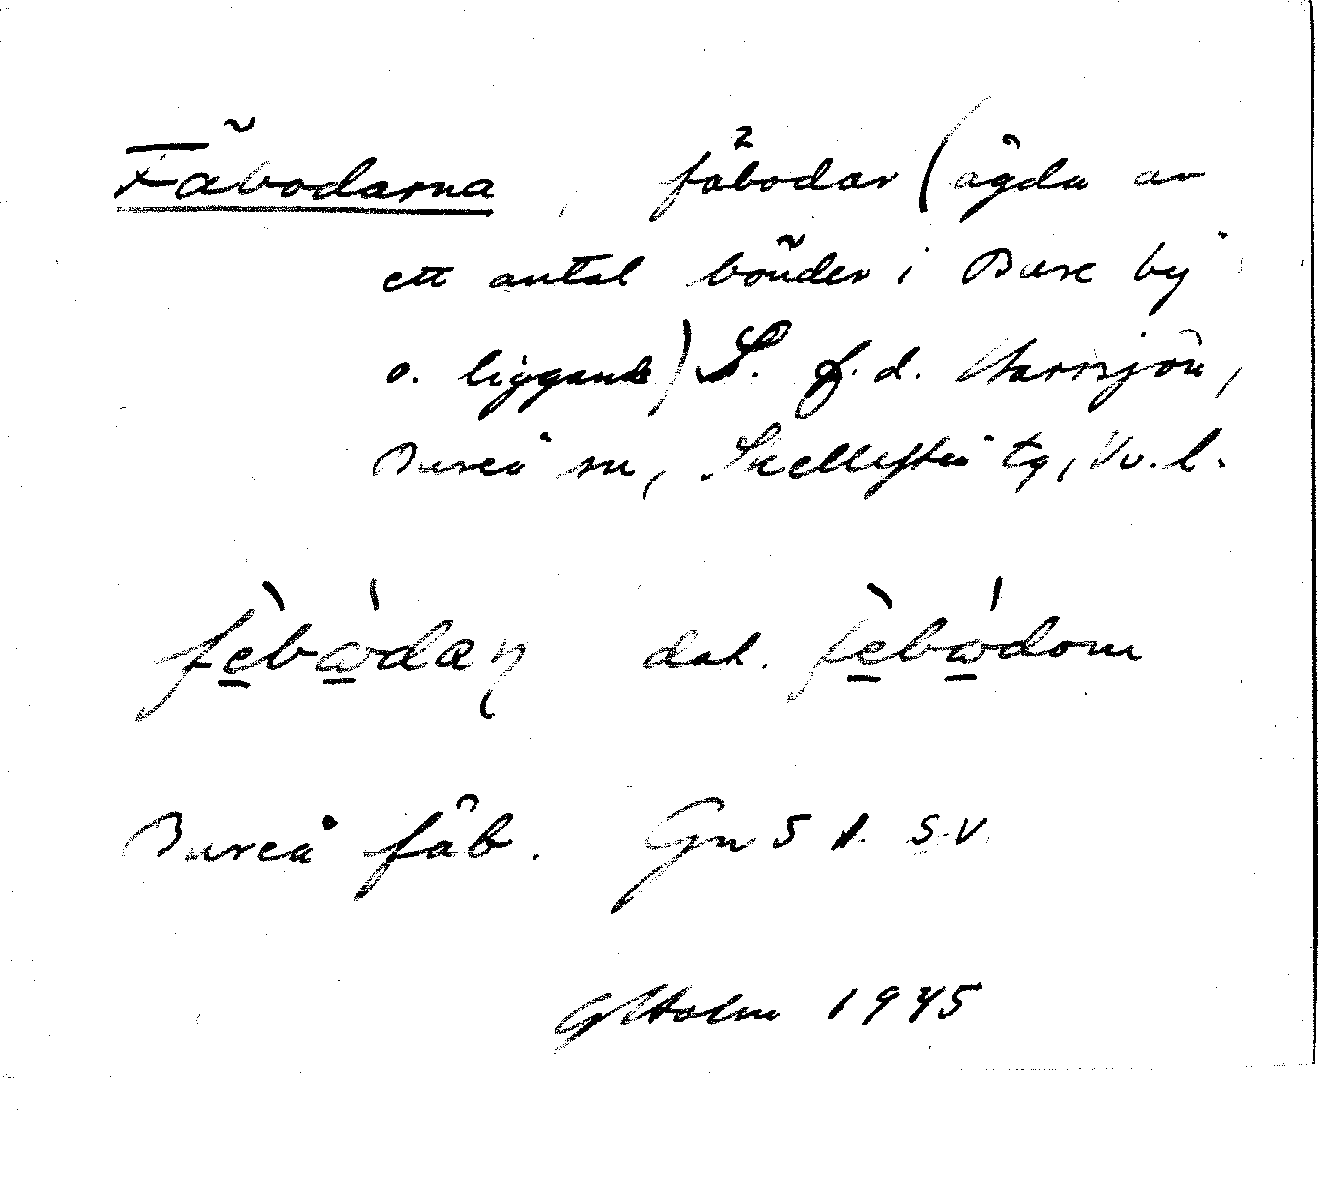 Fäbodarna, fäbodar (ägda av
ett antal bönder i Bure by
o. liggande) S. f.d. Harrsjön,
Bureå sn, Skellefteå tg, Vb. l.
fè̱bώ̱daɳ dat. fè̱bώ̱dom
Bureå fäb. Gn 5 d. S.V.
G Holm 1945